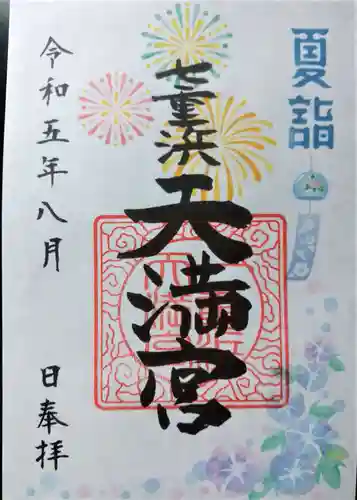 夏詣
七重浜
天満宮
令和五年八月
日奉拝